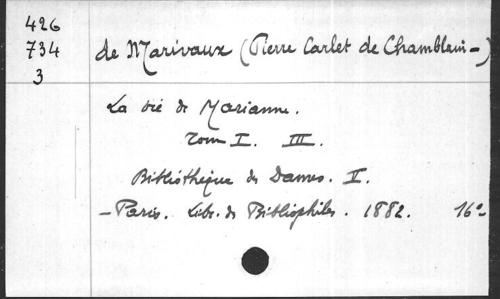 426
734
3
de Marivaux (Pierre Carlet de Chamblain-)
La vie de Marianne.
Tom I. III.
Bibliothèque des Dames. II.
- Paris. Libr. des Bibliophiles. 1882. 16°